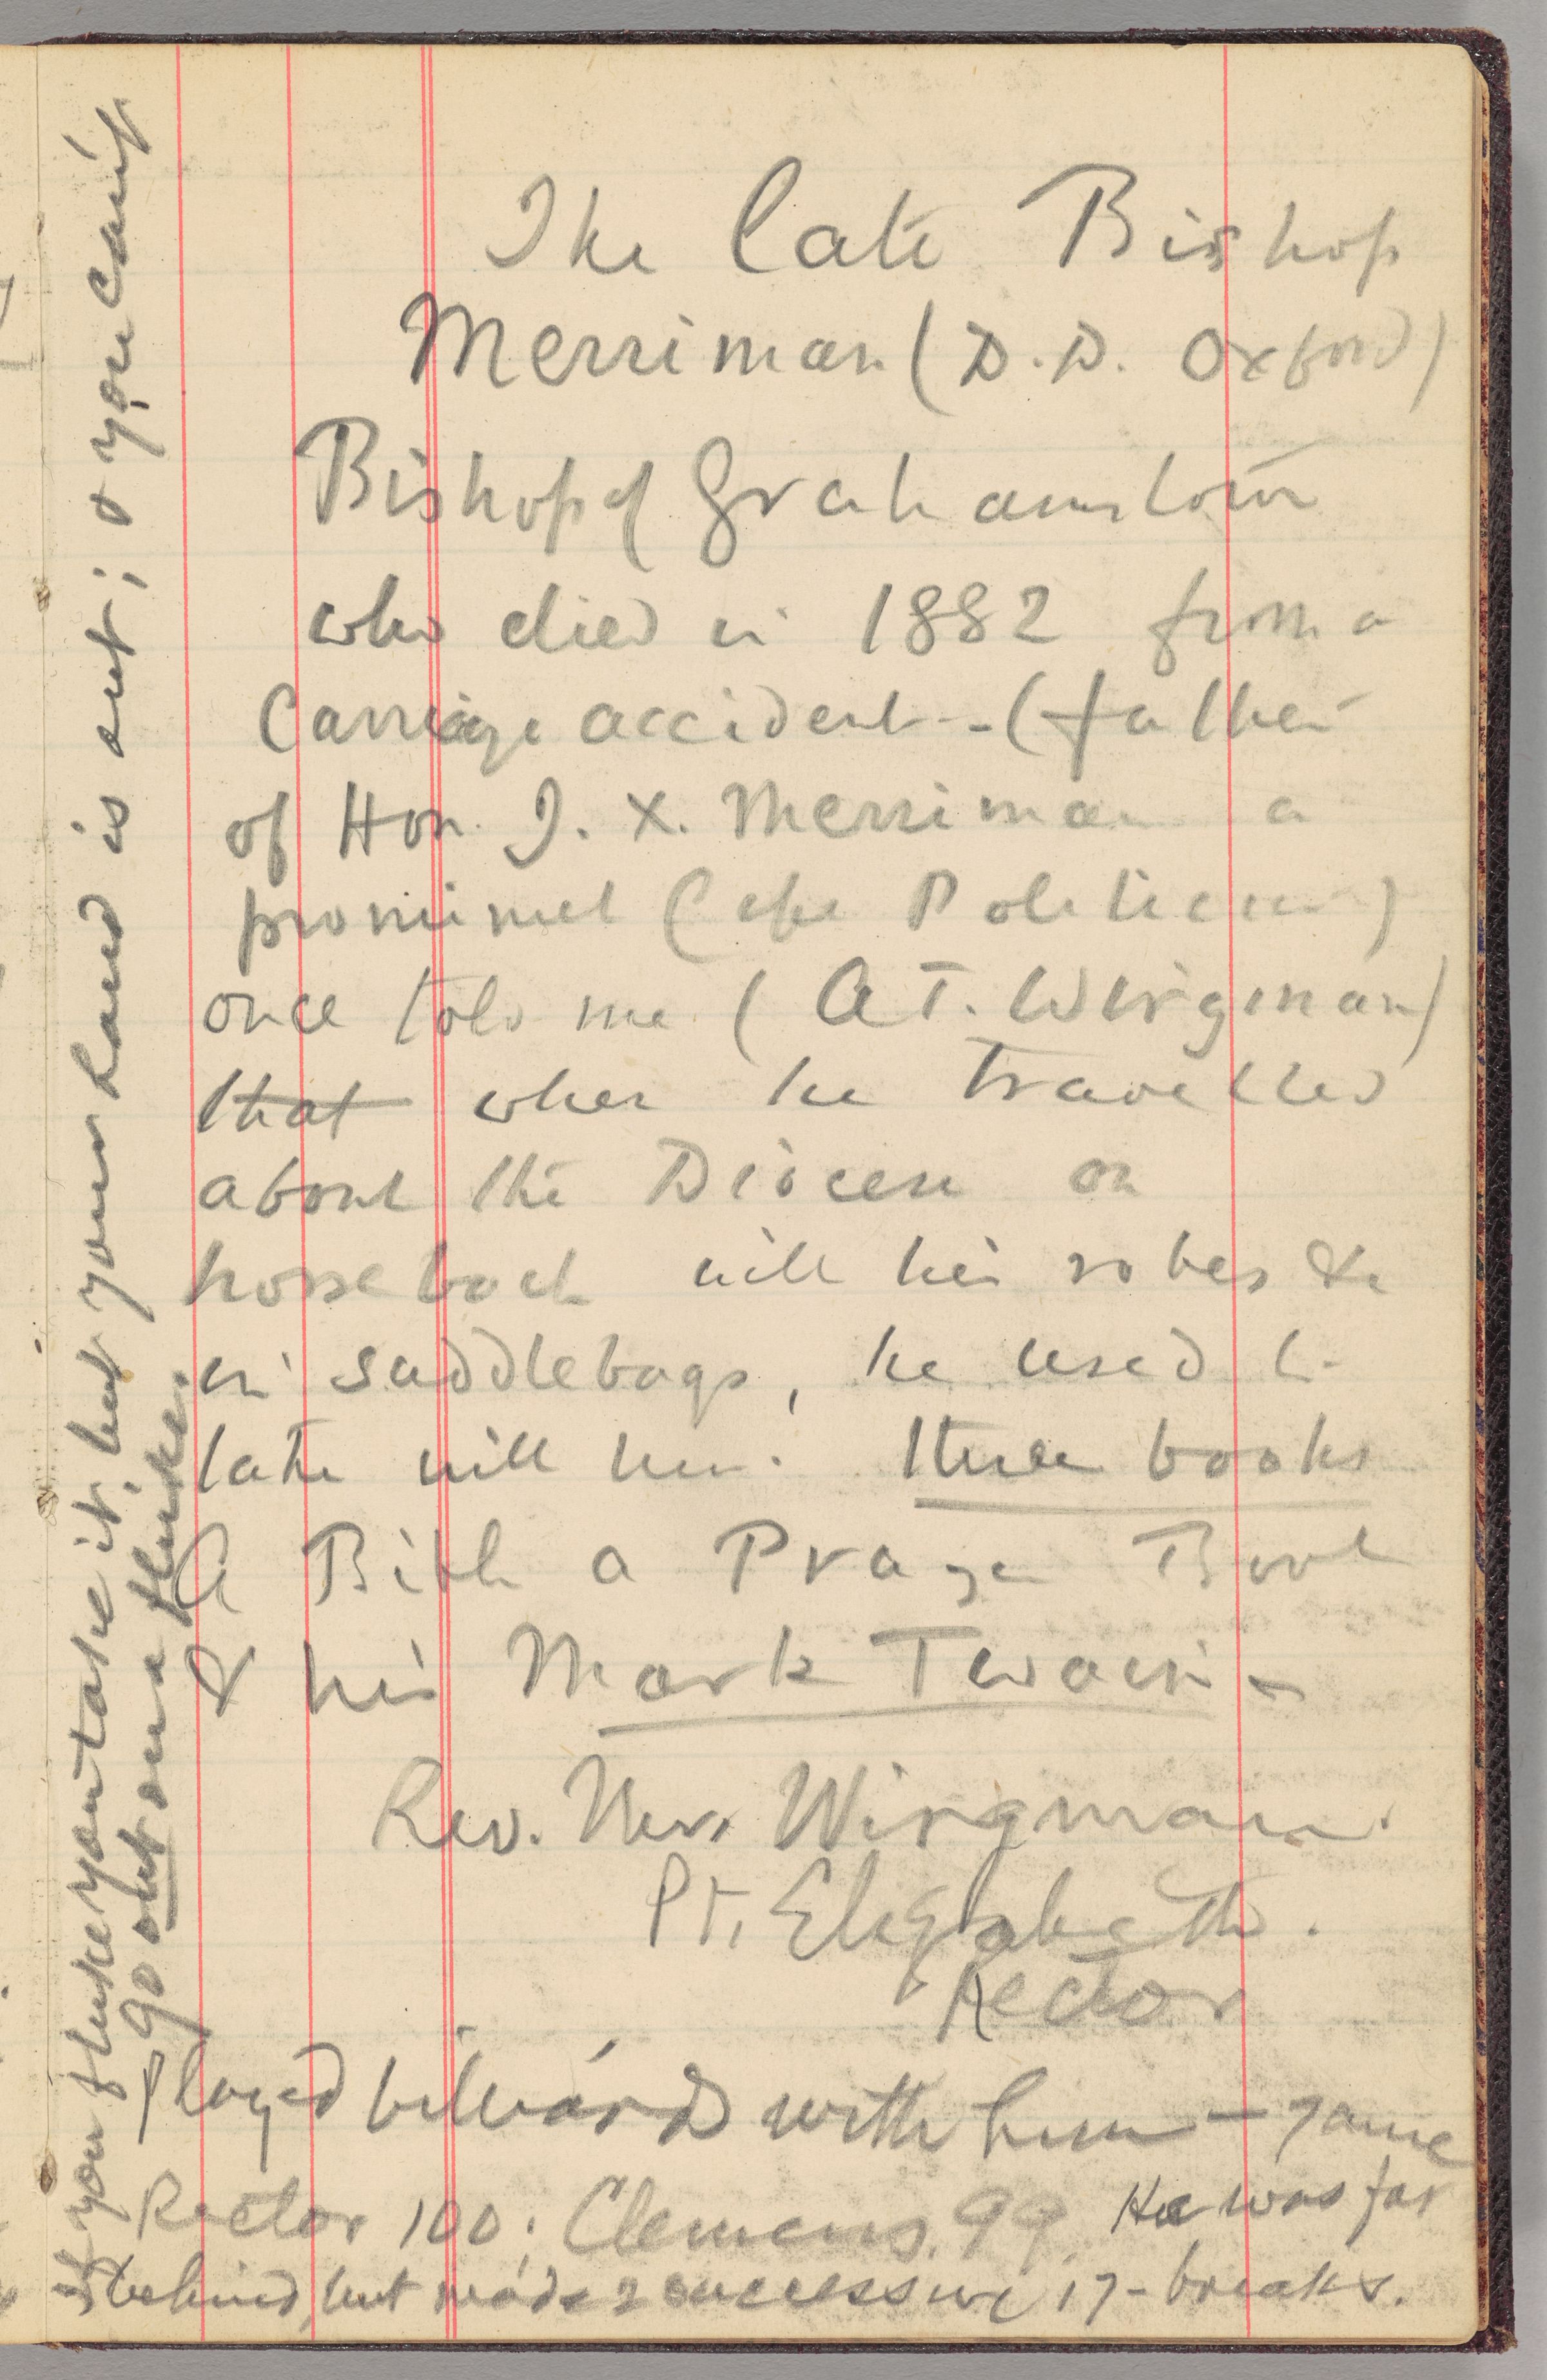 The late Bishop
Merriman (D.D. Oxford)
Bishop of Grahamstown
who died in 1882 from a
Carriage accident - (father
of Hon. J. X. Merriman a
prominent Cape Politician)
once told me (A T. Wirgman)
that when he travelled
about the Diocese on
horseback with his robes &c
in saddlebags, he used to
take with him. three books
A Bible a Prayer Book
& his Mark Twain -
Rev. Wirgman.
Pt. Elizabeth.
Rector
Played billiards with him — game
Rector 100; Clemens, 99. He was far
behind, but made 2 successive 17-breaks.
If you fluke you take it, but your hand is out; & you can't
go out on a fluke.